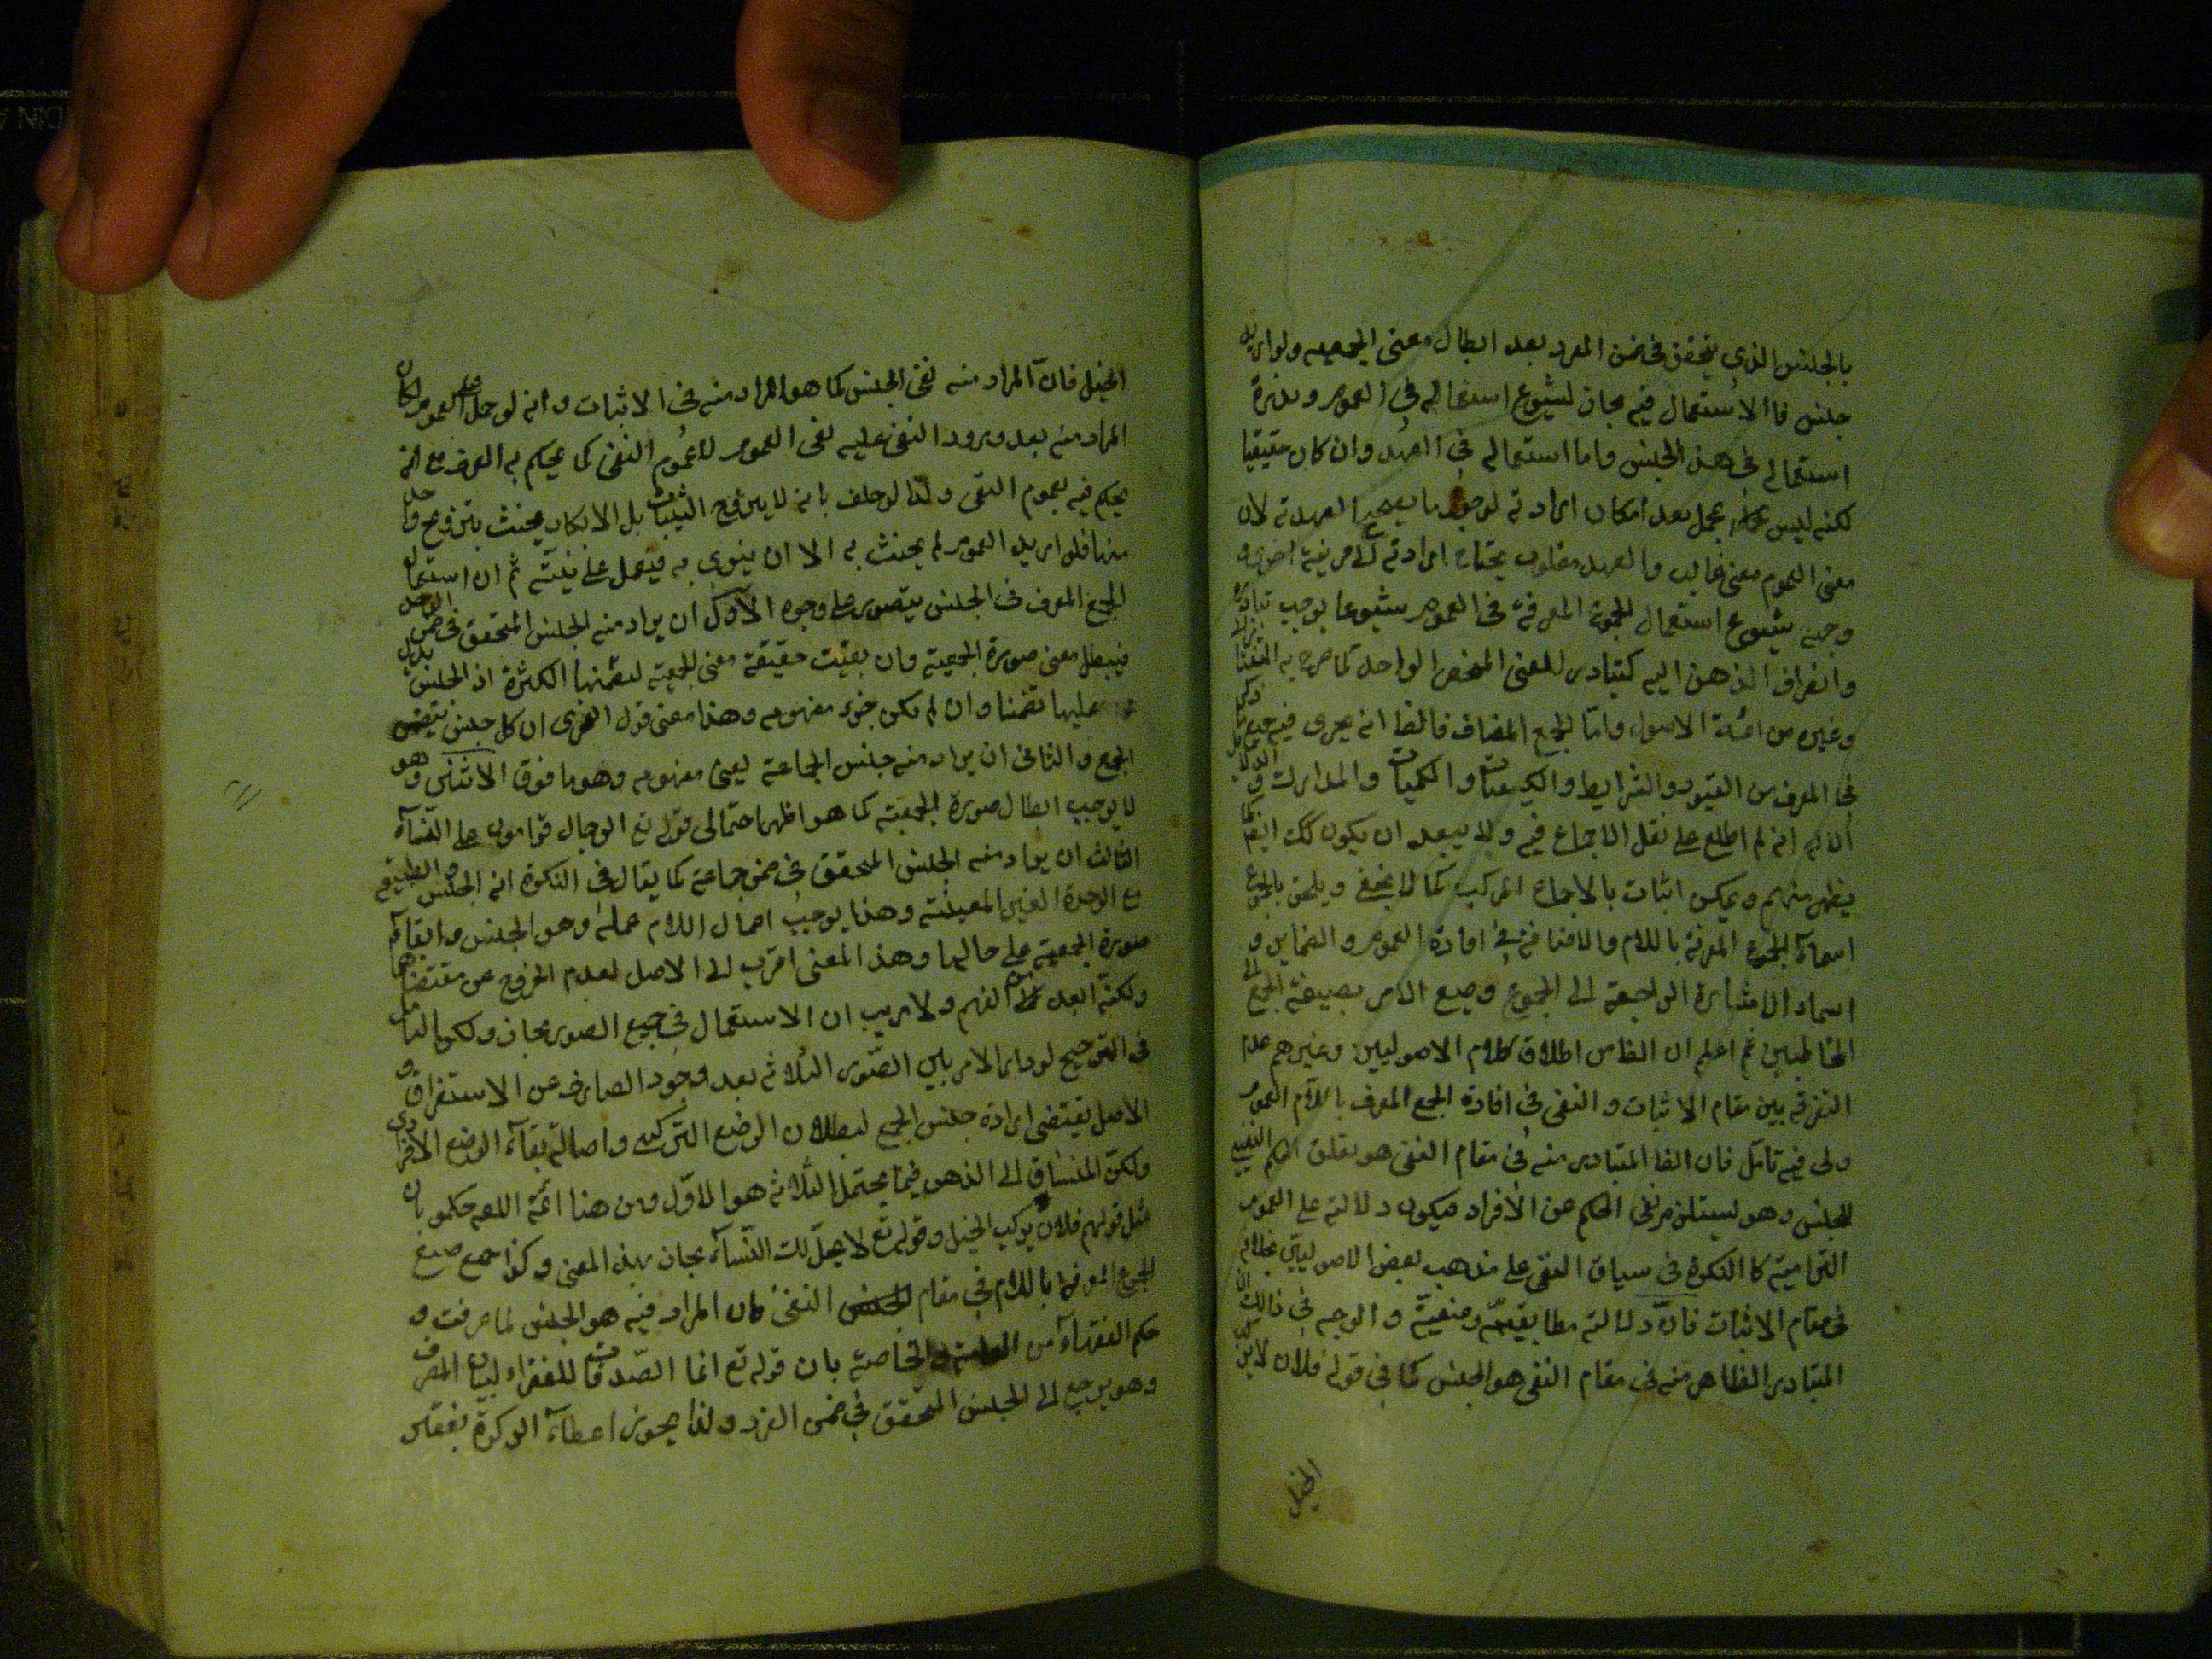 بالجنس الذى يتحقق فى ضمن المفرد بعد ابطال معنى الجمعيه ولو اريد
جنس فاالاستعمال فيه مجاز لشيوع استعماله فى العموم وندرة
استعماله فى هذا الجنس واما استعماله فى العهد وان كان حقيقيا
لكنه ليس بمجمل بعد امكان ارادته لوجود ما العهدية لان
معنى العموم معنى غالب والعهد مغلوب يحتاج ارادته الى قرينة اخرى
وجه شيوع استعمال الجموع المعرفة فى العموم شيوعا يوجب تبادره
وانصراف الذهن اليه كتبادر المعنى الواحد كما صرح به
وغيره من ائمة الاصول وامّا الجمع المضاف فالظا انه يجرى فيه جميع ما ذكر
فى المعرف من القيود والشرايط والكيفيات والكميات والمدارك و
الا انه لم اطلع على نقل الاجماع فيه ولا يبعد ان يكون كك ايضا كما
يظهر منهم ويمكن اثبات بالاجماع المركب كما لا يخفى ويلحق بالجموع
اسماء الجموع المعرفة باللام والاضافة فى افادة العموم والضماير و
اسماء الاشارة الراجعة الى الجموع وصيغ الامر بصيغة الجمع الى
المخاطبين ثم اعلم ان الظا من اطلاق كلام الاصوليين وغيرهم عدم
التفرقة بين مقام الاثبات والنفى فى افادة الجمع المعرف باللام العموم
ولى فيه تامل فان الظا المتبادر منه فى مقام النفى هو تعلق الحكم النفيى
للجنس وهو يستلزم نفى الحكم عن الافراد فيكون دلالته على العموم
التزامية كالنكرة فى سياق النفى على مذهب بعض الاصوليين بخلافه
فى مقام الاثبات فانّ دلالته مطابقيّة وضعيّة والوجه فى ذالك ان
المتبادر الظاهر منه فى مقام النفى هو الجنس كما فى قوله فلان لا يركب
الخيل
الخيل فان المراد منه نفى الجنس كما هو المراد منه فى الاثبات وانه لو حمل على العموم لكان
المراد منه بعد ورود النفى عليه نفى العموم لا عموم النفى كما يحكم به العرف مع انه
يحكم فيه بعموم النفى ولذا لو حلف بانه لا يتزوج الثيبات بل الابكار يحنث بتزوج واحد
منها فلو اريد العموم لم يحنث به الا ان ينوى به فيعمل على نيّته ثم ان استعمال
الجمع المعرف فى الجنس يتصور على وجوه الاوّل ان يراد منه الجنس المتحقق فى ضمن الواحد
فيبطل معنى صورة الجمعية وان بقيت حقيقة معنى الجمعية لتضمنها الكثرة اذ الجنس يدل
عليها تضمنا وان لم يكن جزء مفهومه وهذا معنى قول ان كل جنس يتضمن
الجمع والثانى ان يراد منه جنس الجماعة يعنى مفهومه وهو ما فوق الاثنين وهو
لا يوجب ابطال صورة الجمعية كما هو اظهر احتمالى قوله تع الرجال قوامون على النساء
الثالث ان يراد منه الجنس المتحقق فى ضمن جماعة كما يقال فى النكرة انه الجنس و الطبيعة
مع الوحدة الغير المعينة وهذا يوجب اعمال اللام عمله وهو الجنس وابقاء
صورة الجمعية على حالها وهذا المعنى اقرب الى الاصل لعدم الخروج عن مقتضاهما
ولكنه ابعد الفهم ولا ريب ان الاستعمال فى جميع الصور مجاز ولكن التامل
فى الترجيح لو دار الامر بين الصّور الثلاثه بعد وجود الصارف عن الاستغراق و
الاصل يقتضى ارادة جنس الجمع لبطلان الوضع التركيبى واصالة بقاء الوضع الافرادى
ولكنّ المنساق الى الذهن فيما يحتمل الثلاثه هو الاوّل ومن هنا ائمّة اللغه حكمو بان
مثل قولهم فلان يركب الخيل وقوله تع لا يحلّ لك النّساء مجاز بهذا المعنى وكذا جميع صيغ
الجموع المعرفة باللام فى مقام النفى فان المراد فيه هو الجنس لما عرفت و
حكم الفقهاء من الخاصة بان قوله تع انما الصّدقات للفقراء لبيان المصرف
وهو يرجع الى الجنس المتحقق فى ضمن الفرد ولذا يجوز اعطاء الزكوة بفقير